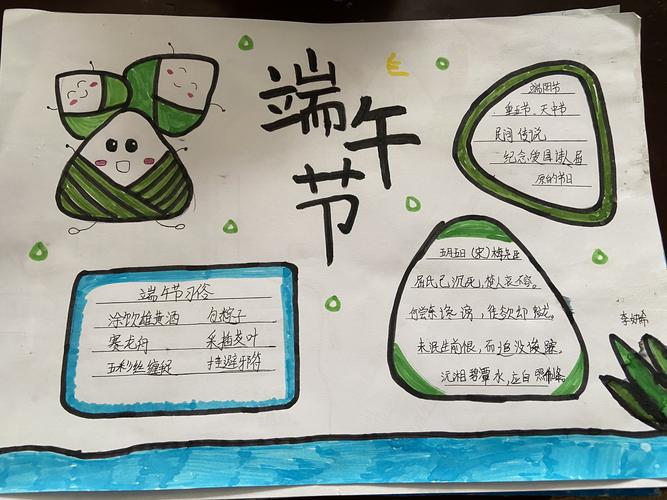 端午节
端阳节
重五节、天中节
民间传说
纪念爱国诗人屈
原的节日
端午节习俗
涂饮雄黄酒 包粽子
赛龙舟 采插艾叶
五彩丝缠 挂避邪符
五月五日(宋)梅尧臣
屈氏已沉死,楚人哀不容。
何尝奈谗谤,徒欲却蛟龙。
未泯生前恨,而追没后踪。
沅湘碧潭水,应自照
李如希